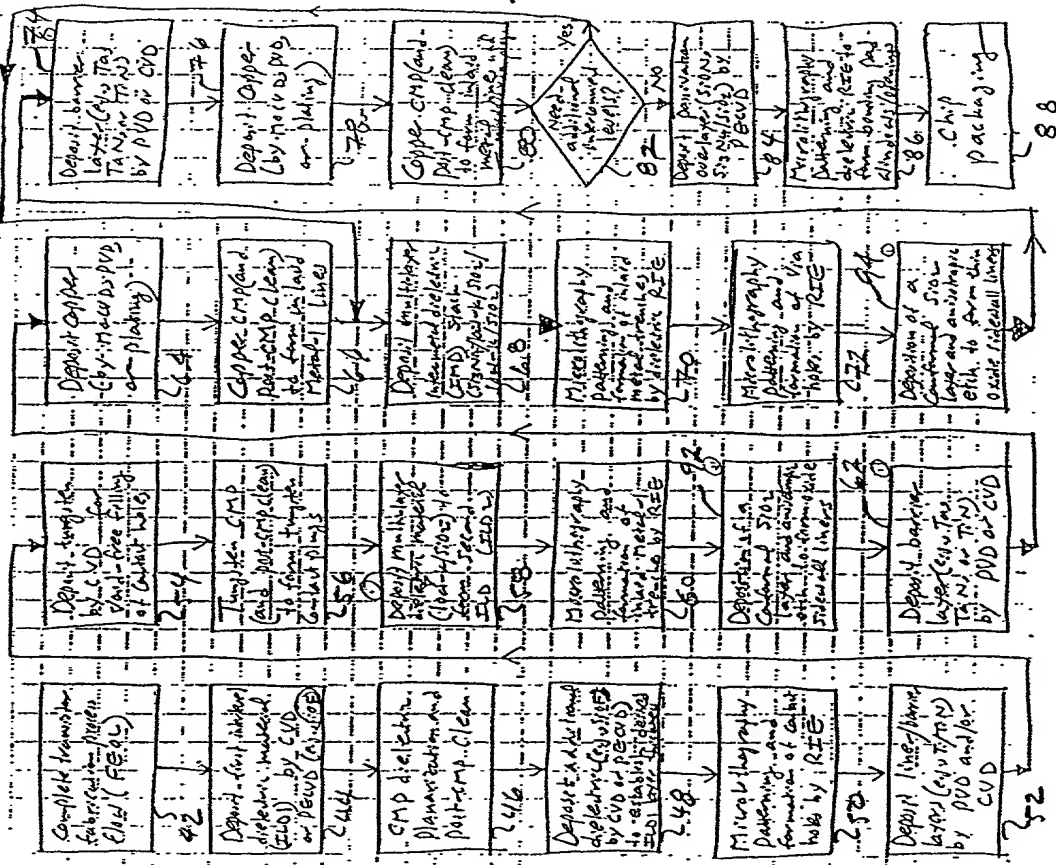 Complete transistor
fabrication process
flow (FEOL)
42
Deposit first interlevel
dielectric material
(ILD1) by CVD
or PECVD
44
CMP dielectric
planarization and
post-CMP clean
46
Deposit additional
dielectric
by CVD or PECVD
to establish desired
ILD1
48
Microlithography
patterning and
formation of contact
holes by RIE
50
Deposit liner/barrier
layer (e.g. Ti/TiN)
by PVD and/or
CVD
52
Deposit tungsten
by CVD for
void-free filling
of contact holes
54
Tungsten CMP
(and post-CMP clean)
to form tungsten
contact plugs
56
Deposit multilayer
dielectric material
(low-k/SiO2) to
form second
ILD (ILD2)
58
Microlithography
patterning and
formation of
inlaid metal-1
trenches by RIE
60
92
Deposition of a
conformal SiO2
layer and anisotropic
etch to form oxide
sidewall liners
62
Deposit barrier
layer (e.g. Ta,
TaN, or TiN)
by PVD or CVD
Deposit copper
(by MOCVD, PVD,
or plating)
64
Copper CMP (and
post-CMP clean)
to form inlaid
metal-1 lines
66
Deposit multilayer
intermetal dielectric
(IMD) stack
(
low-k/SiO2)
68
Microlithography
patterning and
formation of inlaid
metal trenches
by dielectric RIE
70
Microlithography
patterning and
formation of via
holes by RIE
72
94
Deposition of a
conformal SiO2
layer and anisotropic
etch to form thin
oxide sidewall liners
74
Deposit barrier
layer (e.g. Ta,
TaN, or TiN)
by PVD or CVD
76
Deposit copper
(by MOCVD, PVD,
or plating)
78
Copper CMP (and
post-CMP clean)
to form inlaid
metal lines
80
Need
additional
interconnect
levels?
Yes
No
82
Deposit passivation
overlayer (SiON,
Si3N4/SiO2) by
PECVD
84
Microlithography
patterning and
dielectric RIE to
form bonding pad
windows/openings
86
Chip
packaging
88